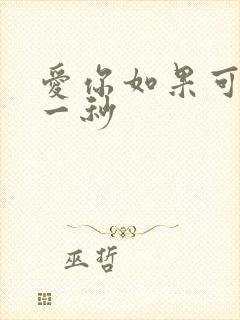 愛你如果可
一秒
巫哲